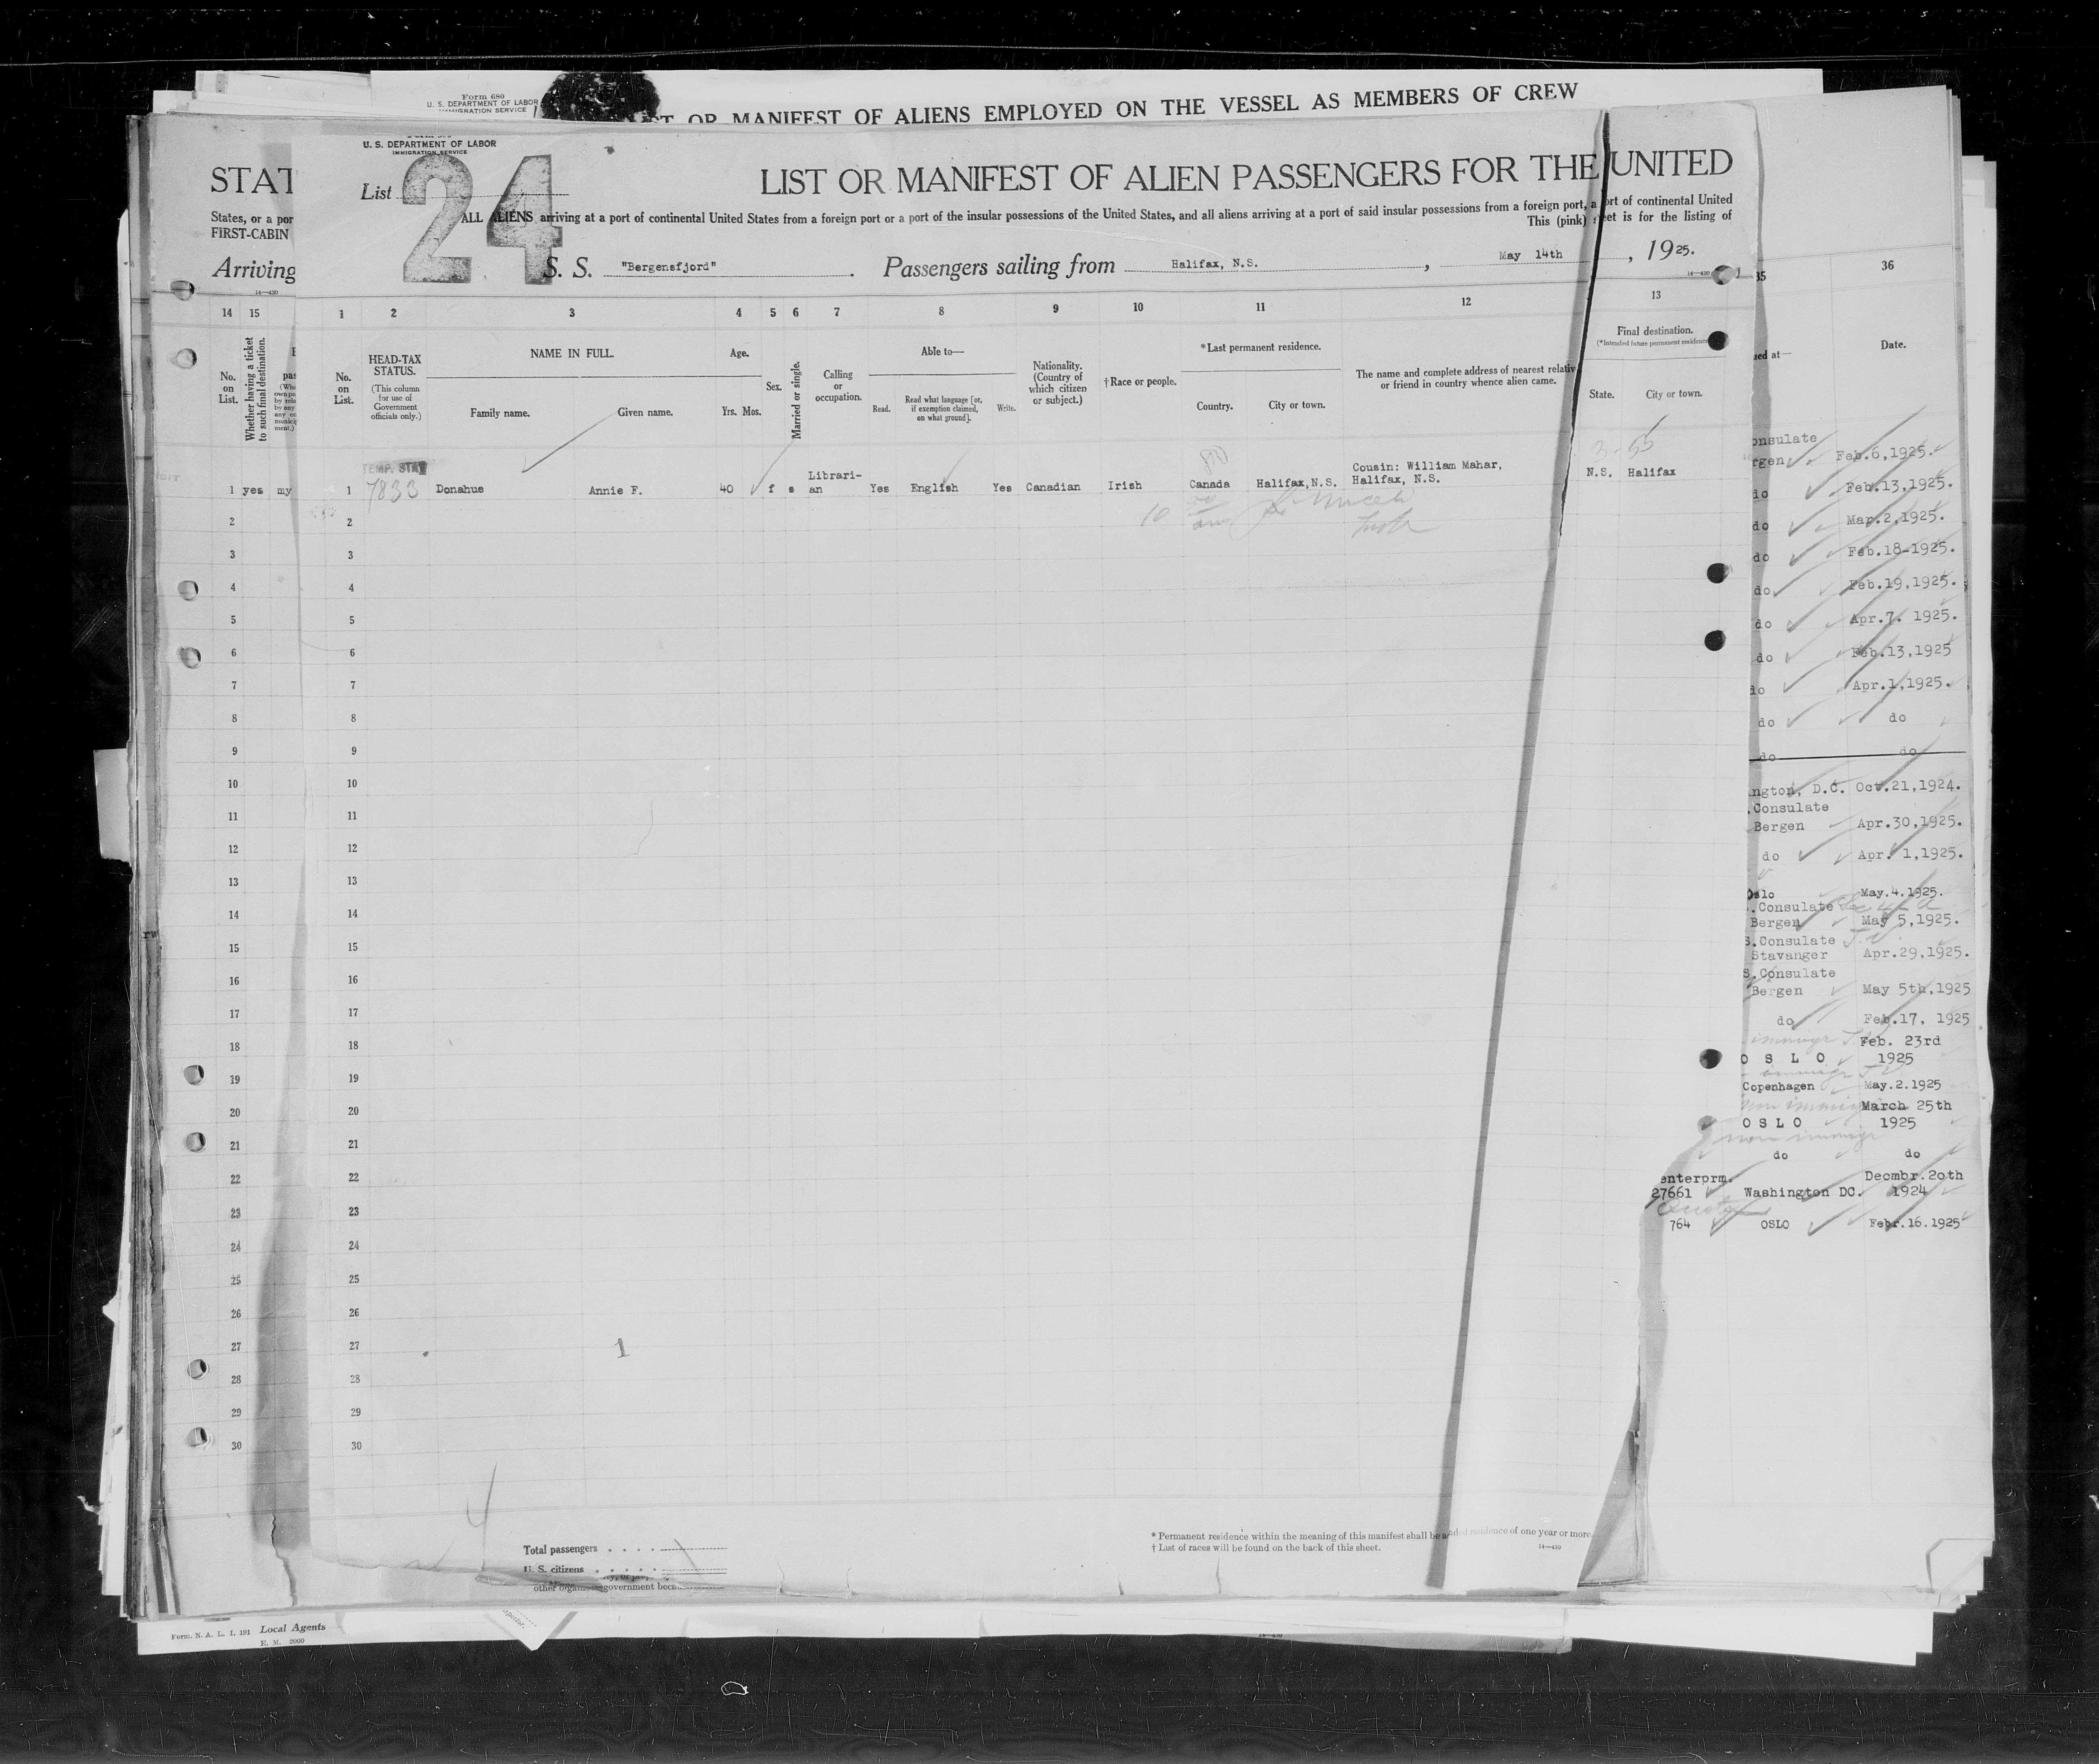 Form 680
U. S. DEPARTMENT OF LABOR
IMMIGRATION SERVICE
OR MANIFEST OF ALIENS EMPLOYED ON THE VESSEL AS MEMBERS OF CREW
U. S. DEPARTMENT OF LABOR
IMMIGRATION SERVICE
STAT
List 24
LIST OR MANIFEST OF ALIEN PASSENGERS FOR THE UNITED
States, or a por
FIRST-CABIN
ALL ALIENS arriving at a port of continental United States from a foreign port or a port of the insular possessions of the United States, and all aliens arriving at a port of said insular possessions from a foreign port, a port of continental United
This (pink) sheet is for the listing of
Arriving
S. S. "Bergensfjord" . Passengers sailing from Halifax, N.S. , May 14th , 1925.
14—430
14 15 1 2 3 4 5 6 7 8 9 10 11 12 13 35 36
No. on List.
Whether having a ticket to such final destination.
No. on List.
HEAD-TAX STATUS.
(This column for use of Government officials only.)
NAME IN FULL.
Family name. Given name.
Age.
Yrs. Mos.
Sex.
Married or single.
Calling or occupation.
Able to—
Read. Read what language [or, if exemption claimed, on what ground]. Write.
Nationality. (Country of which citizen or subject.)
†Race or people.
*Last permanent residence.
Country. City or town.
The name and complete address of nearest relative or friend in country whence alien came.
Final destination.
(*Intended future permanent residence
State. City or town.
ued at—
Date.
TEMP. STAY
7833
1 yes my 1 Donahue Annie F. 40 f s Librari-an Yes English Yes Canadian Irish Canada Halifax,N.S. Cousin: William Mahar, Halifax, N.S. N.S. Halifax
3-55
10
2 2
3 3
4 4
5 5
6 6
7 7
8 8
9 9
10 10
11 11
12 12
13 13
14 14
15 15
16 16
17 17
18 18
19 19
20 20
21 21
22 22
23 23
24 24
25 25
26 26
27 27
28 28
29 29
30 30
1
onsulate
rgen Feb.6,1925.
do Feb.13,1925.
do Mar.2,1925.
do Feb.18-1925.
do Feb.19,1925.
do Apr.7. 1925.
do Feb.13,1925
do Apr.1,1925.
do do
do do
ngton, D.C. Oct.21,1924.
.Consulate
Bergen Apr.30,1925.
do Apr. 1,1925.
Oslo May.4.1925.
.Consulate
Bergen May 5,1925.
S.Consulate
Stavanger Apr.29,1925.
S.Consulate
Bergen May 5th,1925
do Feb.17, 1925
immigr Feb. 23rd
O S L O 1925
Copenhagen May.2.1925
non immigr March 25th
O S L O 1925
non immigr
do do
enterprm. Decmbr.20th
27661 Washington DC. 1924
Quota
764 OSLO Febr.16.1925
Total passengers
U. S. citizens
* Permanent residence within the meaning of this manifest shall be residence of one year or more.
† List of races will be found on the back of this sheet.
14—430
Form. N. A. L. I. 191 Local Agents
E. M. 2000